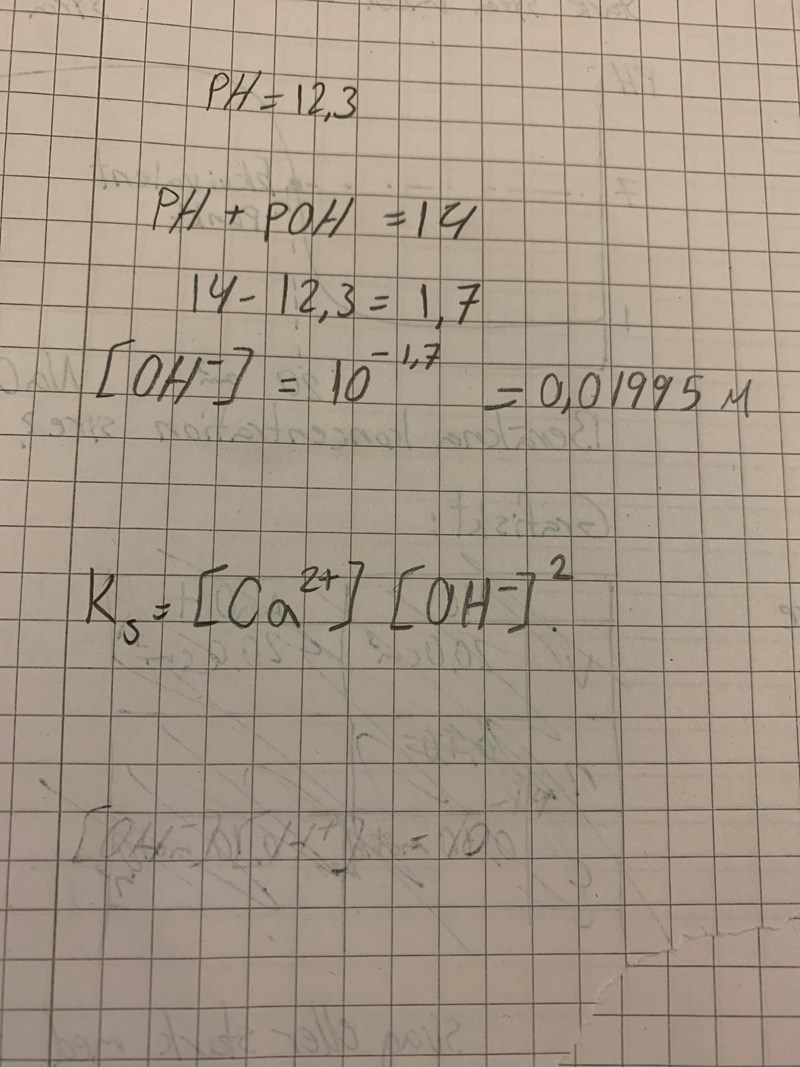 PH = 12,3
PH + POH = 14
14 - 12,3 = 1,7
[OH⁻] = 10^-1,7 = 0,01995 M
Ks = [Ca²⁺] [OH⁻]².